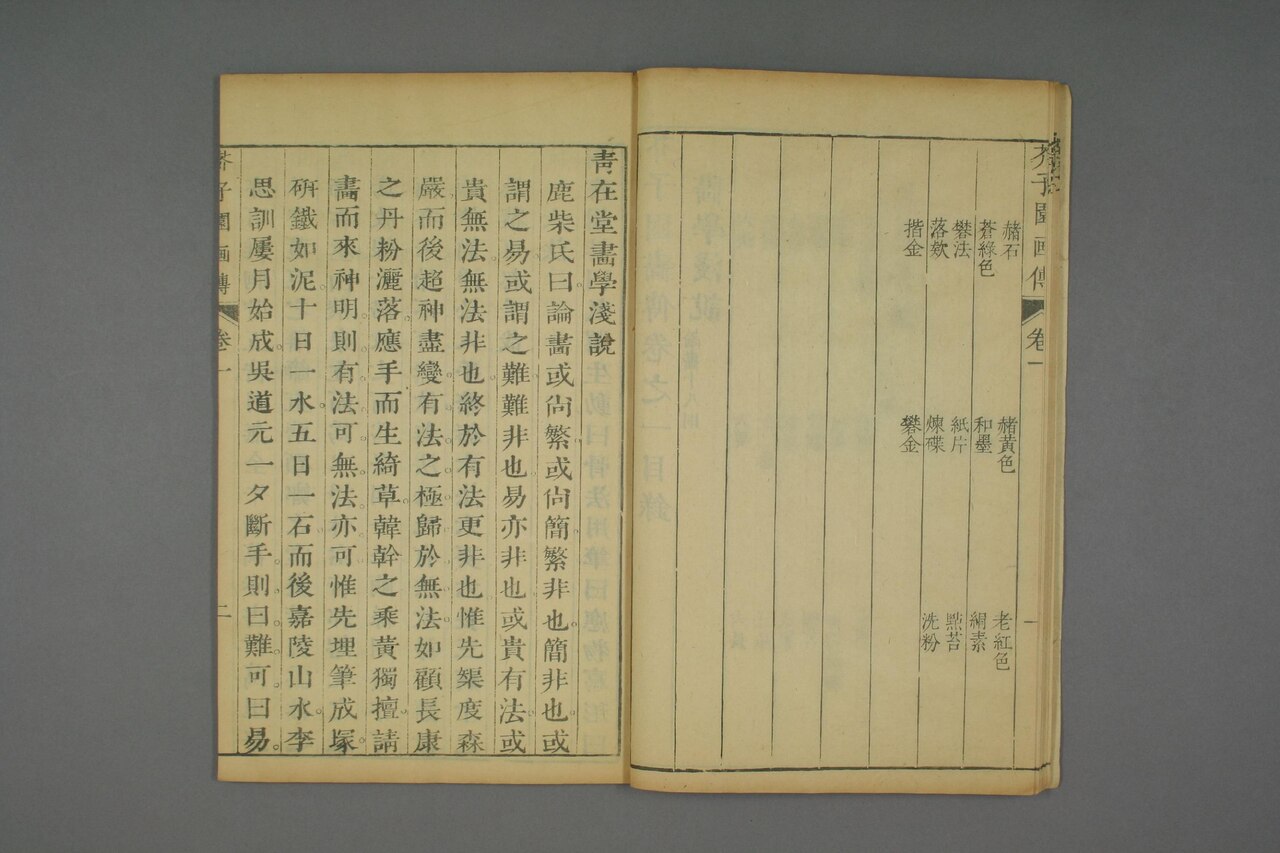 芥子園画傳 卷一 一
赭石 赭黃色 老紅色
蒼綠色 和墨 絹素
礬法 紙片 㸃苔
落欵 煉碟 洗粉
揩金 礬金
青在堂畵學淺說
鹿柴氏曰論畵或尙繁或尙簡繁非也簡非也或
謂之易或謂之難難非也易亦非也或貴有法或
貴無法無法非也終於有法更非也惟先榘度森
嚴而後超神盡變有法之極歸於無法如顧長康
之丹粉灑落應手而生綺草韓幹之乘黃獨擅請
畵而來神明則有法可無法亦可惟先埋筆成塚
研鐵如泥十日一水五日一石而後嘉陵山水李
思訓屢月始成吳道元一夕斷手則曰難可曰易
芥子園画傳 卷一 二